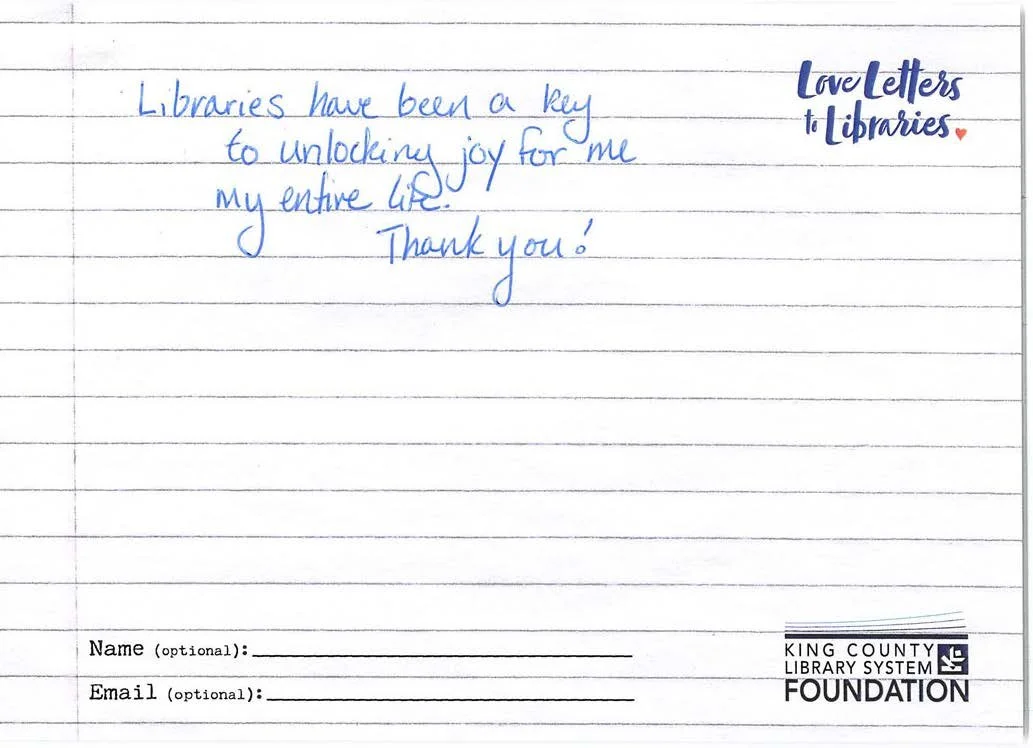 Love Letters
to Libraries
Libraries have been a key
to unlocking joy for me
my entire life.
Thank you!
Name (optional):
Email (optional):
KING COUNTY
LIBRARY SYSTEM
FOUNDATION